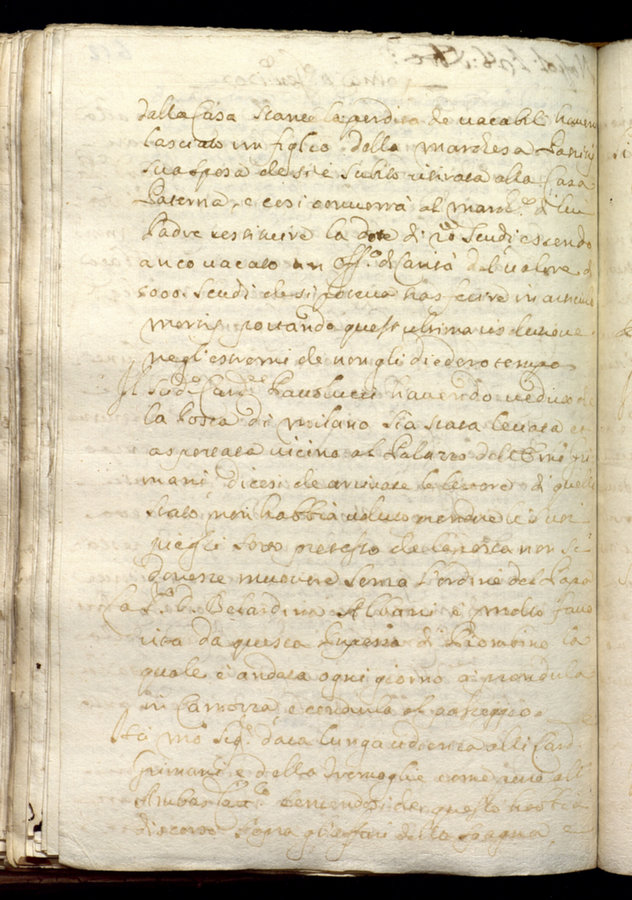 dalla Casa stante la perdita de vacabili havendo
lasciato un figlio della Marchesa
sua sposa che si è subito ritirata alla Casa
Paterna, e così converrà al March.e di lui
Padre restituire la dote di scudi essendo
anco vacato un Off.o di Cavità del valore di
5000. scudi che si poteva trasferire in articulo
mortis portando quest ultima
negl'estremi che non gli diedero tempo
Il sud.o Card.le Paulucci havendo veduto che
la Posta di Milano sia stata levata et
asportata vicino al Palazzo dell'Em.o Gri
mani dicesi che arrivate le lettere di quello
stato non habbia voluto mandare i suoi
pieghi sotto pretesto che la posta non si
dovesse muovere senza l'ordine del Papa
La S.ra D. Belardina Albani è molto favo
rita da questa di Piombino la
quale è andata ogni giorno a prenderla
in Carrozza, e condurla al passeggio.
data lunga udienza alli Card.
Grimani e della Tremoglie come anco all'
Ambasciat.e tenendosi che questo habbia
discorso sopra gl'affari della Spagna, e